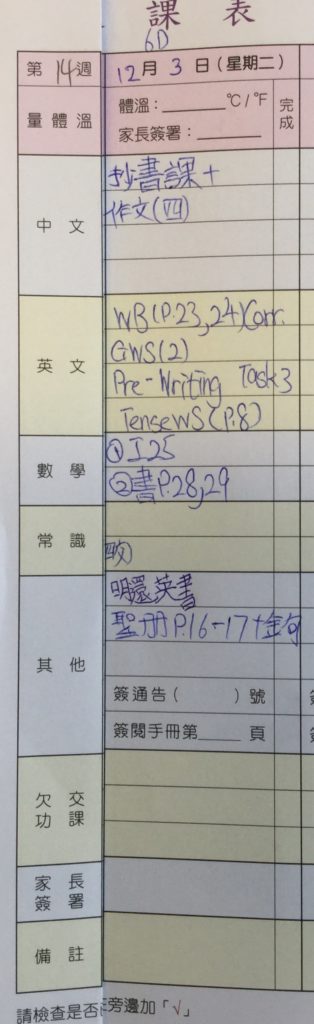 課表
6D
第14週 12月3日(星期二) 完成
量體溫 體溫:______℃/℉
家長簽署:______
中文 抄書課十
作文(四)
英文 WB(P.23,24)Corr.
GWS(2)
Pre-Writing Task3
Tense WS(P.8)
數學 ①工25
②書P.28,29
常識
其他 明還英書
聖册P.16-17+金句
簽通告( )號
簽閱手冊第____頁
欠交功課
家長簽署
備註
請檢查是否 旁邊加「√」